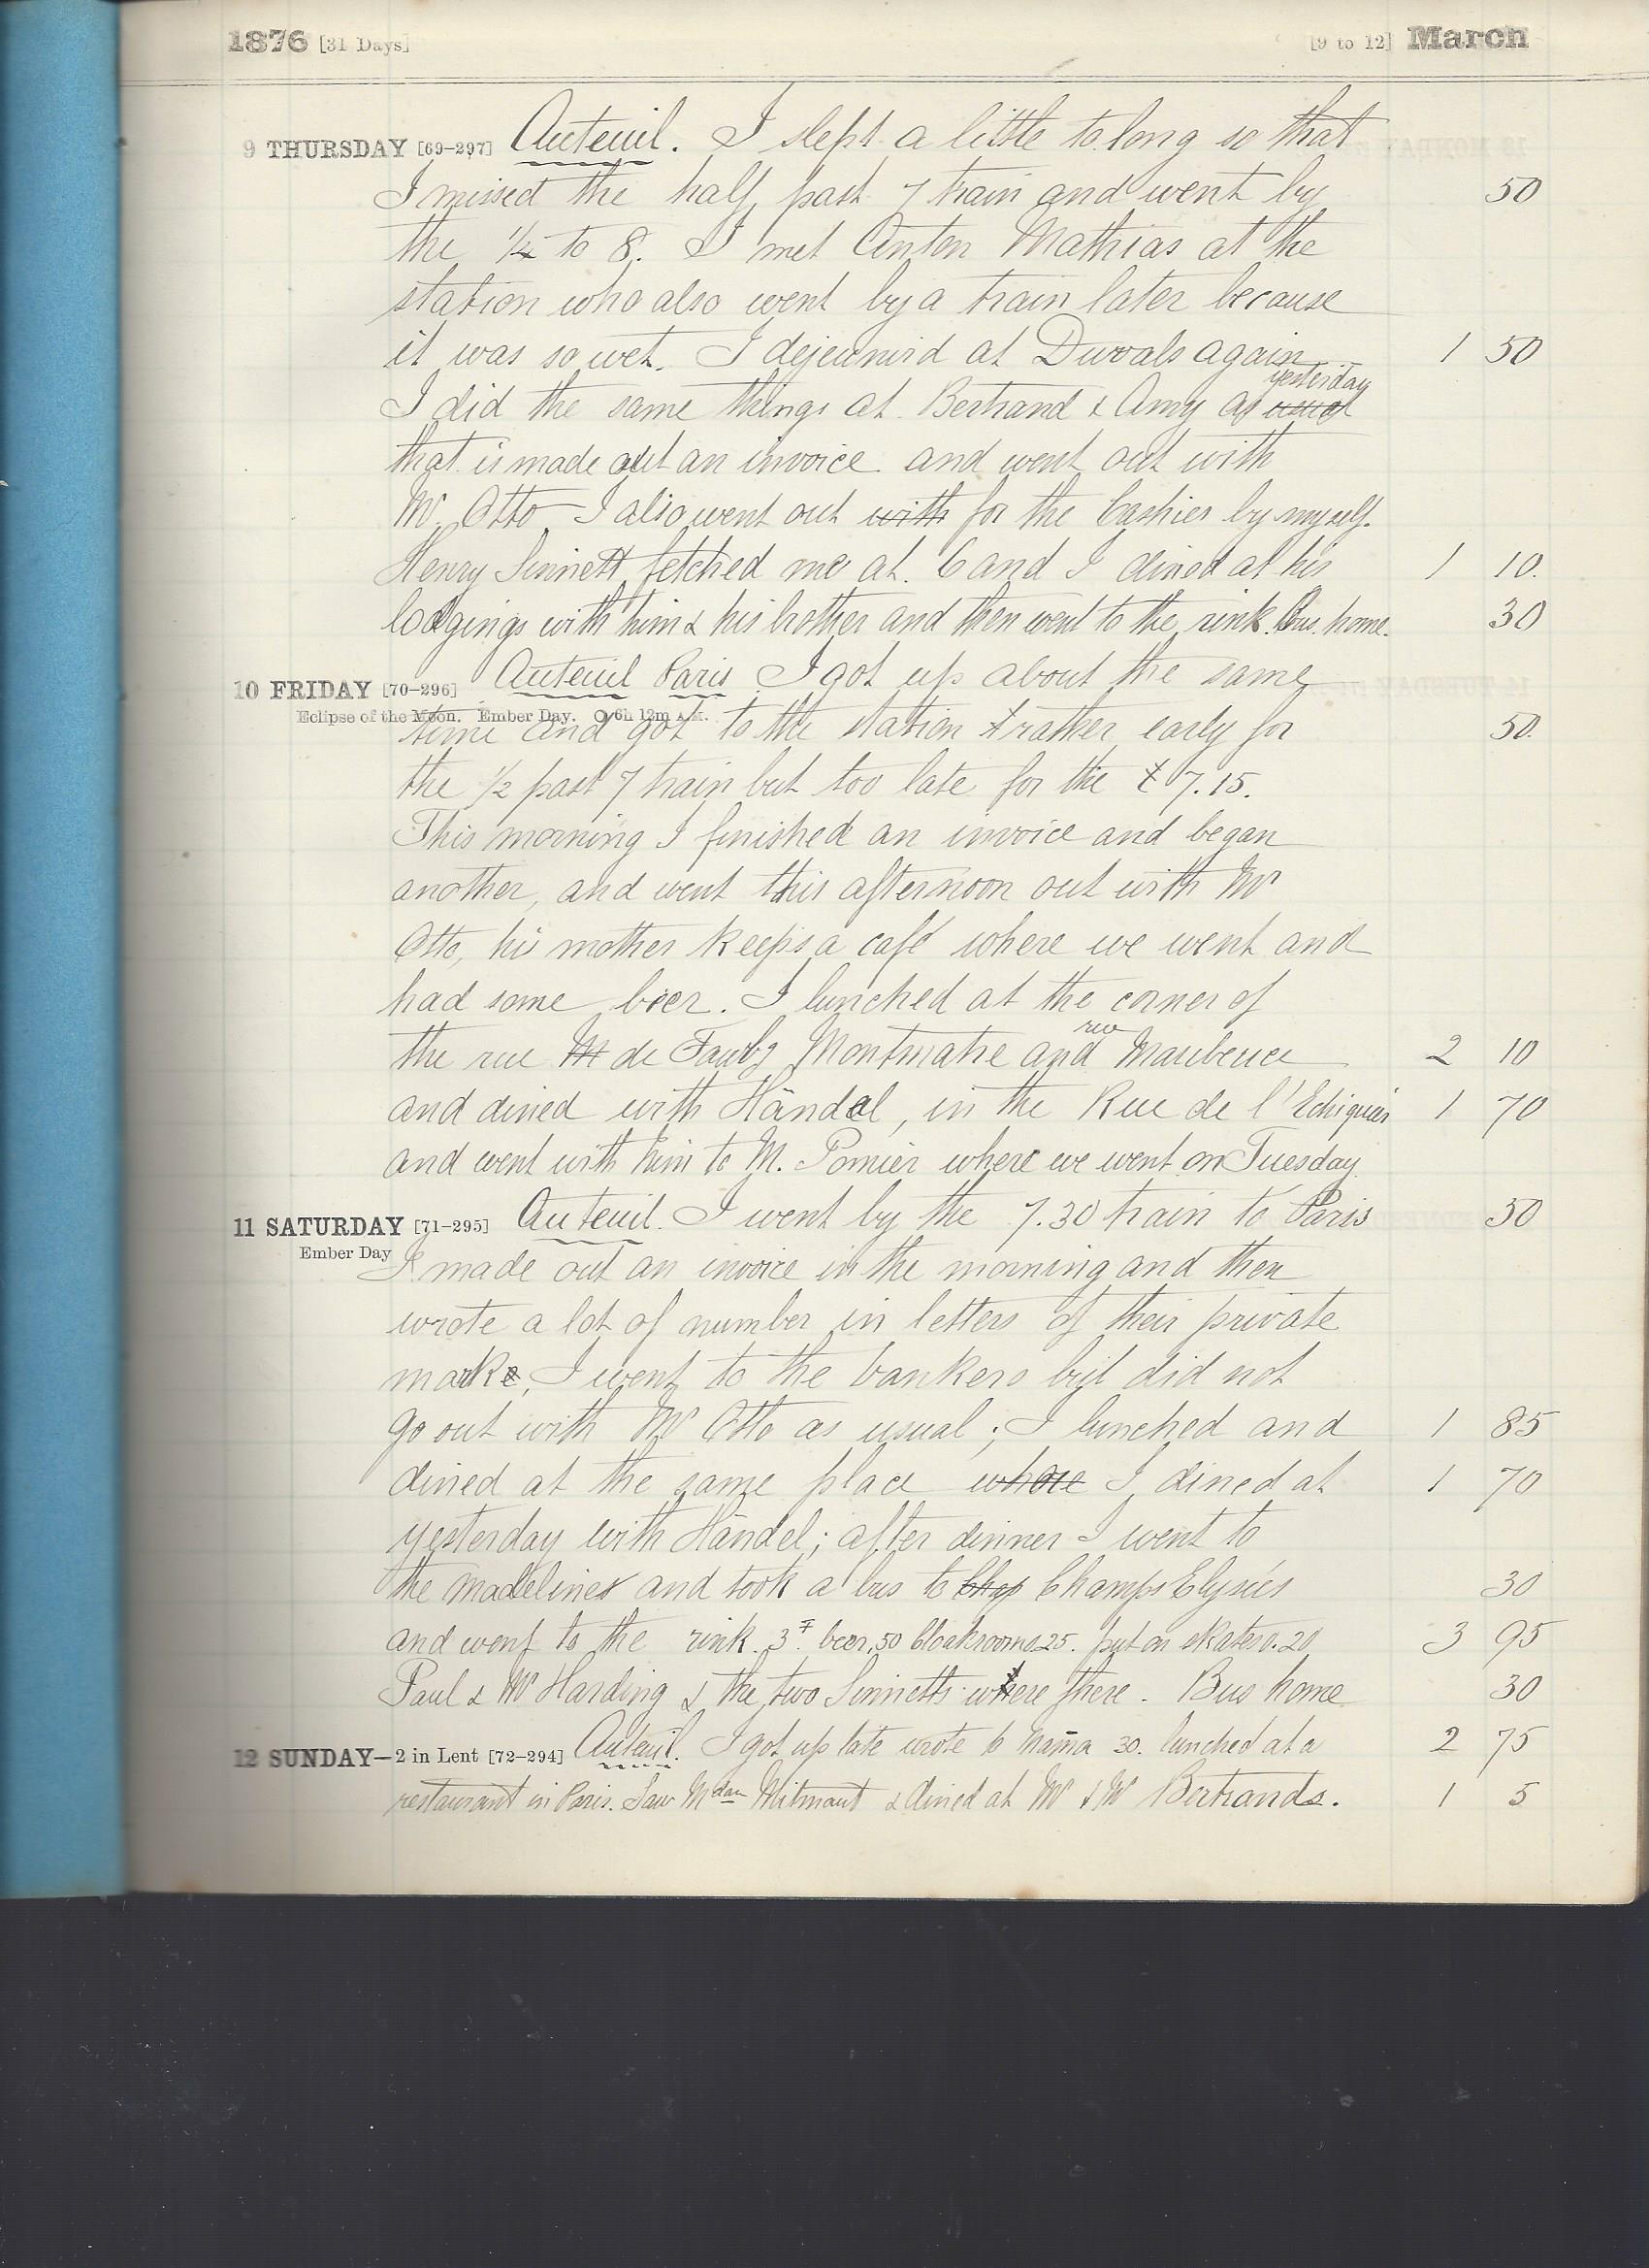 1876 [31 Days] [9 to 12] March
9 THURSDAY [69-297] Auteuil. I slept a little to long so that
I missed the half past 7 train and went by 50
the 1/4 to 8. I met Anton Mathias at the
station who also went by a train later because
it was so wet. I dejeunir'd at Duvals again 1 50
yesterday
I did the same things at Bertrand & Amy as usual
that is made out an invoice and went out with
Mr Otto I also went out with for the Cashier by myself.
Henry Sinnett fetched me at 6 and I dined at his 1 10.
lodgings with him & his brother and then went to the rink. Bus. home. 30
10 FRIDAY [70-296] Auteuil Paris I got up about the same
Eclipse of the Moon. Ember Day. 6h 12m A.M.
time and got to the station rather early for 50.
the 1/2 past 7 train but too late for the 7.15.
This morning I finished an invoice and began
another, and went this afternoon out with Mr
Otto, his mother keeps a café where we went and
had some beer. I lunched at the corner of
rue
the rue M de Faubg Montmatre and Maubeuce 2 10
and dined with Händel, in the Rue de l'Echiquier 1 70
and went with him to M. Pomier where we went on Tuesday
11 SATURDAY [71-295] Auteuil. I went by the 7.30 train to Paris 50
Ember Day
I made out an invoice in the morning and then
wrote a lot of number in letters of their private
mark, I went to the bankers but did not
go out with Mr Otto as usual; I lunched and 1 85
dined at the same place where I dined at 1 70
yesterday with Händel; after dinner I went to
the madeline and took a bus to Chap Champs Elysées 30
and went to the rink. 3f. beer,50 Cloakroom0.25. put on skates0.20 3 95
Paul & Mr Harding & the two Sinnetts were there. Bus home 30
12 SUNDAY—2 in Lent [72-294] Auteuil. I got up late wrote to Mama 30. lunched at a 2 75
restaurant in Paris. Saw Mdan Mitmaut & dined at Mr & Mr Bertrands. 1 5